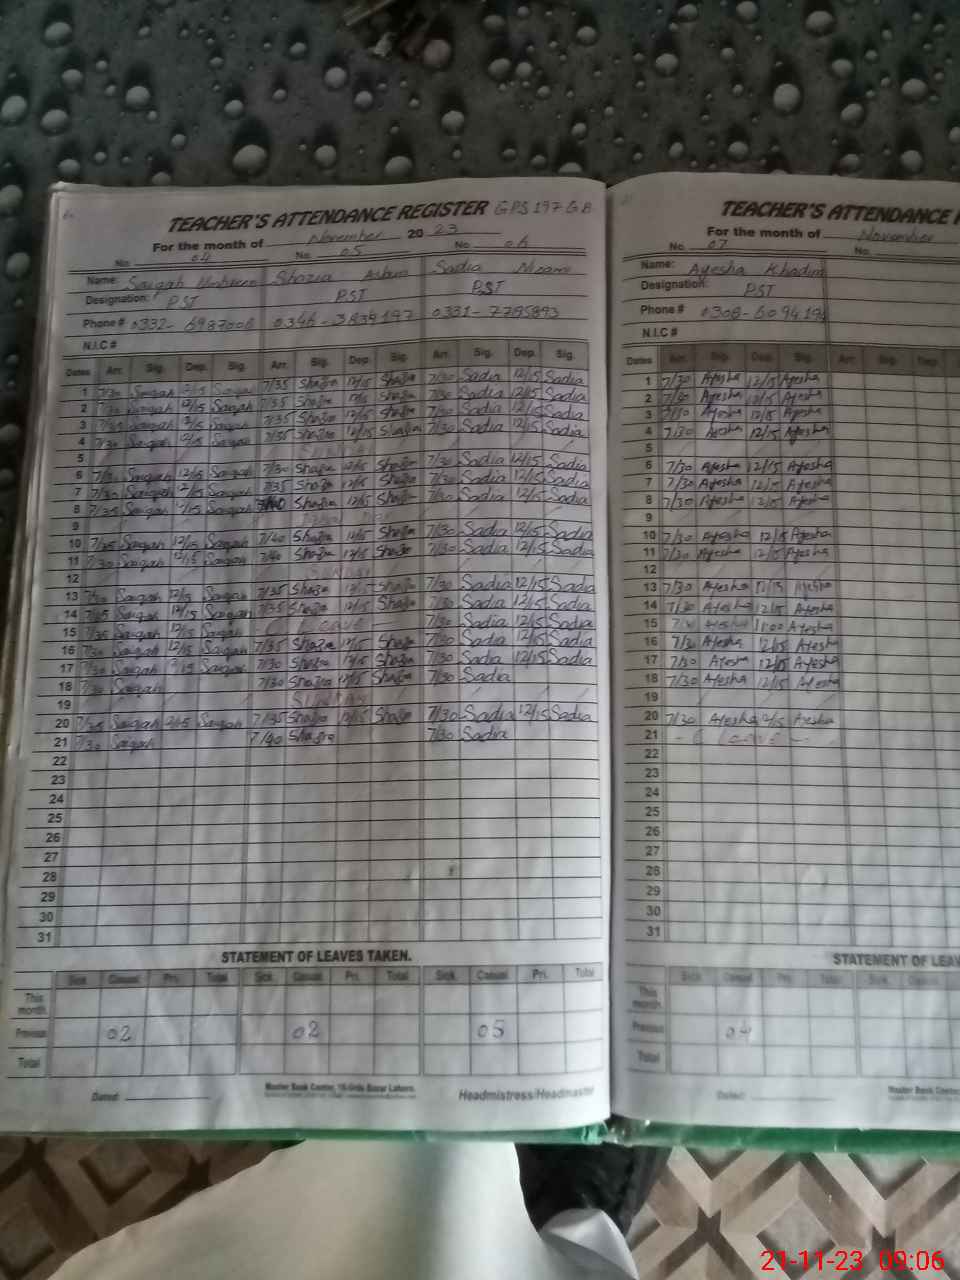 TEACHER'S ATTENDANCE REGISTER GPS 197 GB
For the month of November 20 23
No. 04 No. 05 No. 06
Name: Saiqah Shazia Sadia
Designation: PST PST PST
Phone # 0332- 0346-3839197 0331-7785893
N.I.C #
Dates Arr. Sig. Dep. Sig. Arr. Sig. Dep. Sig. Arr. Sig. Dep. Sig.
1 7/30 Saiqah 12/15 Saiqah 7/35 Shazia 12/15 Shazia 7/30 Sadia 12/15 Sadia
2 7/30 Saiqah 12/15 Saiqah 7/35 Shazia 12/15 Shazia 7/30 Sadia 12/15 Sadia
3 7/35 Saiqah 12/15 Saiqah 7/35 Shazia 12/15 Shazia 7/30 Sadia 12/15 Sadia
4 7/30 Saiqah 12/15 Saiqah 7/35 Shazia 12/15 Shazia 7/30 Sadia 12/15 Sadia
5 SUNDAY
6 7/30 Saiqah 12/15 Saiqah 7/30 Shazia 12/15 Shazia 7/30 Sadia 12/15 Sadia
7 7/30 Saiqah 12/15 Saiqah 7/35 Shazia 12/15 Shazia 7/30 Sadia 12/15 Sadia
8 7/35 Saiqah 12/15 Saiqah Shazia 12/15 Shazia 7/30 Sadia 12/15 Sadia
9
10 7/35 Saiqah 12/15 Saiqah 7/40 Shazia 12/15 Shazia 7/30 Sadia 12/15 Sadia
11 7/30 Saiqah 12/15 Saiqah 7/40 Shazia 12/15 Shazia 7/30 Sadia 12/15 Sadia
12 SUNDAY
13 7/30 Saiqah 12/15 Saiqah 7/35 Shazia 12/15 Shazia 7/30 Sadia 12/15 Sadia
14 7/35 Saiqah 12/15 Saiqah 7/35 Shazia 12/15 Shazia 7/30 Sadia 12/15 Sadia
15 7/35 Saiqah 12/15 Saiqah C LEAVE 7/30 Sadia 12/15 Sadia
16 7/30 Saiqah 12/15 Saiqah 7/35 Shazia 12/15 Shazia 7/30 Sadia 12/15 Sadia
17 7/30 Saiqah 12/15 Saiqah 7/30 Shazia 12/15 Shazia 7/30 Sadia 12/15 Sadia
18 7/30 Saiqah 7/30 Shazia 12/15 Shazia 7/30 Sadia
19 SUNDAY
20 7/35 Saiqah 12/15 Saiqah 7/35 Shazia 12/15 Shazia 7/30 Sadia 12/15 Sadia
21 7/30 Saiqah 7/40 Shazia 7/30 Sadia
22
23
24
25
26
27
28
29
30
31
STATEMENT OF LEAVES TAKEN.
Sick Casual Pri. Total Sick Casual Pri. Total Sick Casual Pri. Total
This month
Previous 02 02 05
Total
Dated: Master Book Center, Urdu Bazar Lahore. Headmistress/Headmaster
TEACHER'S ATTENDANCE
For the month of November
No. 07 No.
Name: Ayesha Khadim
Designation: PST
Phone # 0308-609419
N.I.C #
Dates Arr. Sig. Dep. Sig. Arr. Sig. Dep.
1 7/30 Ayesha 12/15 Ayesha
2 7/40 Ayesha 12/15 Ayesha
3 7/30 Ayesha 12/15 Ayesha
4 7/30 Ayesha 12/15 Ayesha
5
6 7/30 Ayesha 12/15 Ayesha
7 7/30 Ayesha 12/15 Ayesha
8 7/30 Ayesha 12/15 Ayesha
9
10 7/30 Ayesha 12/15 Ayesha
11 7/30 Ayesha 12/15 Ayesha
12
13 7/30 Ayesha 12/15 Ayesha
14 7/30 Ayesha 12/15 Ayesha
15 Ayesha 11:00 Ayesha
16 7/30 Ayesha 12/15 Ayesha
17 7/30 Ayesha 12/15 Ayesha
18 7/30 Ayesha 12/15 Ayesha
19
20 7/30 Ayesha 12/15 Ayesha
21 - C LEAVE -
22
23
24
25
26
27
28
29
30
31
STATEMENT OF
Sick Casual Pri. Total Sick Casual
This month
Previous 04
Total
Dated: Master Book
21-11-23 09:06